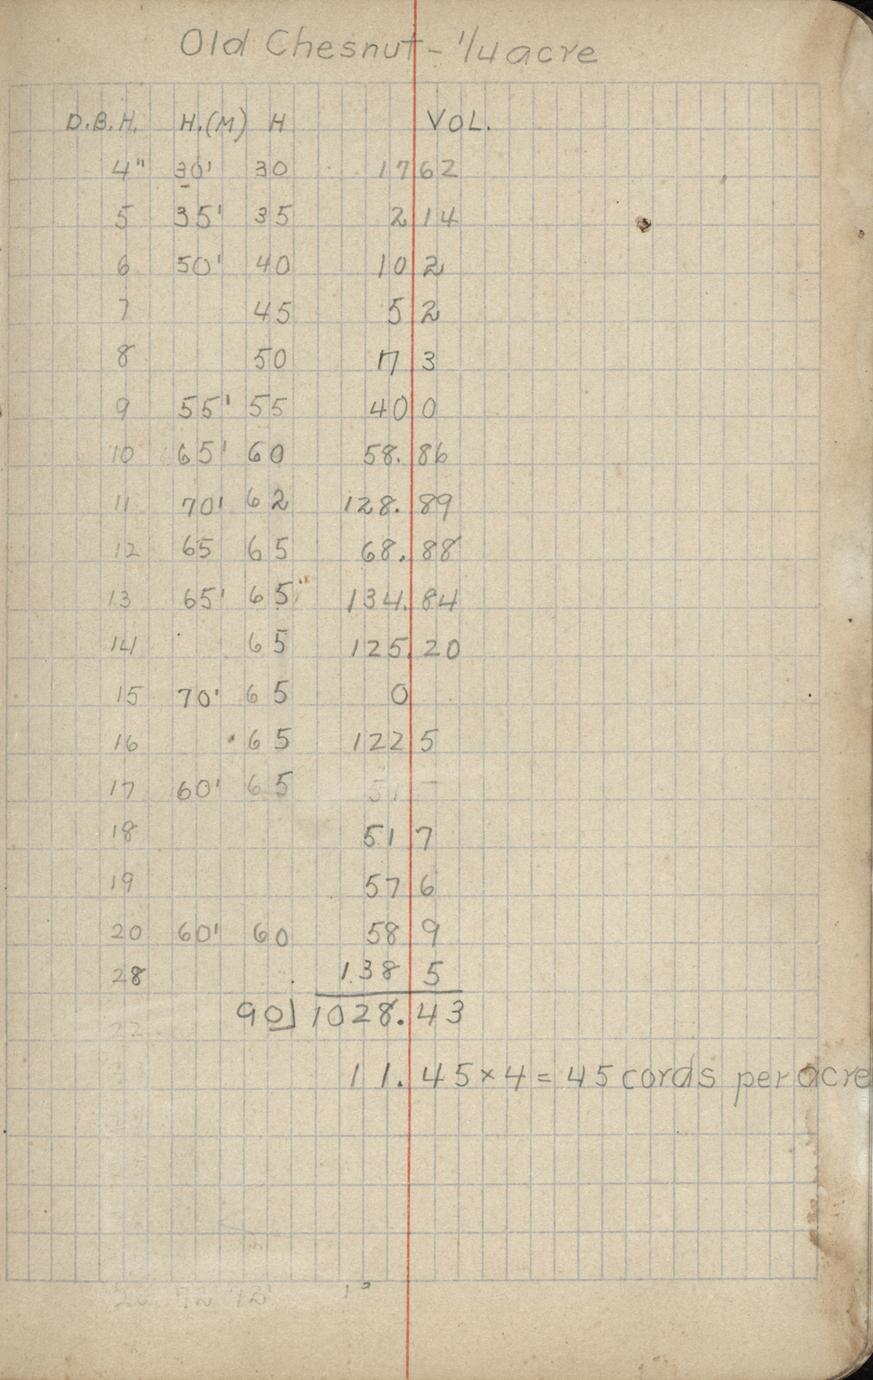 Old Chesnut - 1/4 acre
D.B.H. H.(M) H VOL.
4" 30' 30 17 62
5 35' 35 2 14
6 50' 40 10 2
7 45 5 2
8 50 17 3
9 55' 55 40 0
10 65' 60 58. 86
11 70' 62 128. 89
12 65 65 68. 88
13 65' 65 134. 84
14 65 125. 20
15 70' 65 0
16 65 122 5
17 60' 65
18 51 7
19 57 6
20 60' 60 58 9
28 138 5
90 1028. 43
11. 45 x 4 = 45 cords per acre